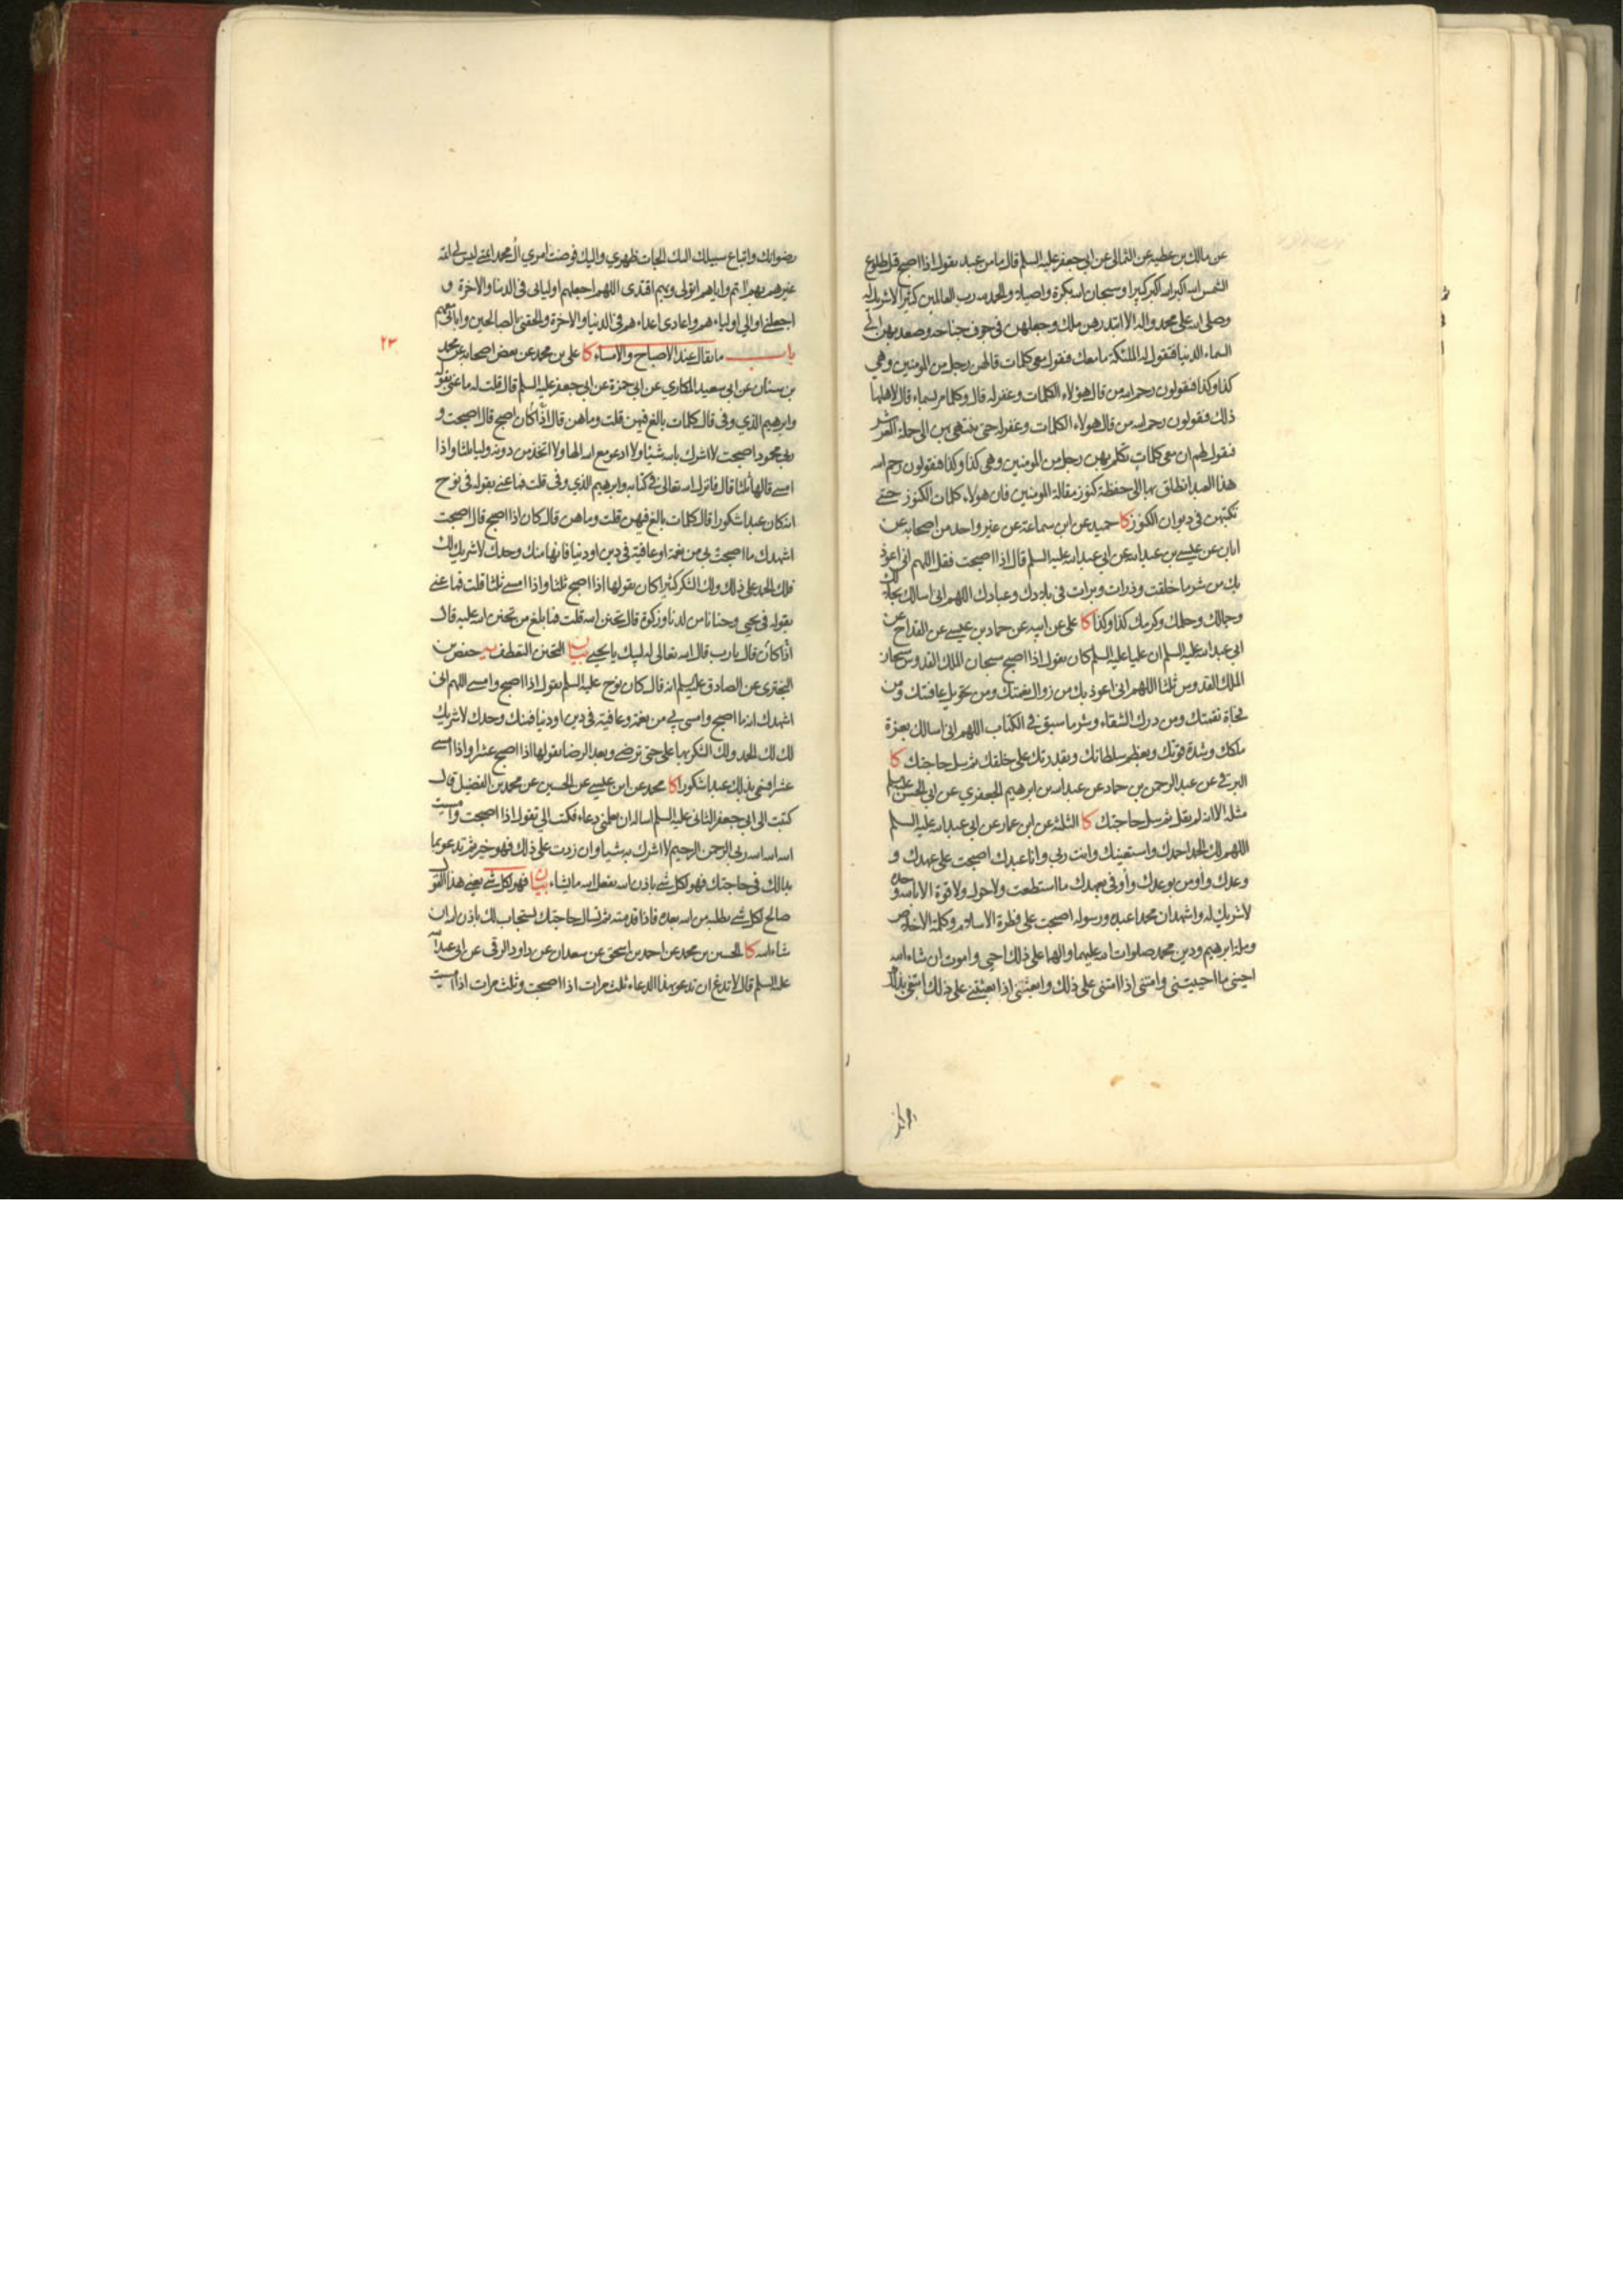 عن مالك بن عطية عن الثمالي عن ابي جعفر عليه السلم قال ما من عبد يقول اذا اصبح قبل طلوع
الشمس الله اكبر الله اكبر كبيرا وسبحان الله بكرة واصيلا والحمد لله رب العالمين كثيرا لا شريك له
وصلى الله على محمد واله الا ابتدرهن ملك وجعلهن في جوف جناحه وصعد بهن الى
السماء الدنيا فتقول له الملئكة ما معك فيقول معي كلمات قالهن رجل من المومنين وهي
كذا وكذا فيقولون رحم الله من قال هؤلاء الكلمات وغفر له قال وكلما مر بسماء قال لاهلها
ذلك فيقولون رحم الله من قال هولاء الكلمات وغفر له حتى ينتهي بهن الى حملة العرش
فيقول لهم ان معي كلمات تكلم بهن رجل من المومنين وهي كذا وكذا فيقولون رحم الله
هذا العبد انطلق بها الى حفظة كنوز مقالة المومنين فان هولاء كلمات الكنوز حتى
تكتبهن في ديوان الكنوز كا حميد عن ابن سماعة عن غير واحد من اصحابه عن
ابان عن عيسى بن عبد الله عن ابي عبد الله عليه السلم قال اذا اصبحت فقل اللهم اني اعوذ
بك من شر ما خلقت وذرات وبرات في بلادك وعبادك اللهم اني اسالك بجلالك
وجمالك وحلمك وكرمك كذا وكذا كا علي عن ابيه عن حماد بن عيسى عن القداح عن
ابي عبد الله عليه السلم ان عليا عليه السلم كان يقول اذا اصبح سبحان الملك القدوس سبحان
الملك القدوس ثلثا اللهم اني اعوذ بك من زوال نعمتك ومن تحويل عافيتك ومن
فجاة نقمتك ومن درك الشقاء وشر ما سبق في الكتاب اللهم اني اسالك بعزة
ملكك وشدة قوتك وبعظم سلطانك وبقدرتك على خلقك ثم سل حاجتك كا
البرقي عن عبد الرحمن بن حماد عن عبد الله بن ابرهيم الجعفري عن ابي الحسن عليه السلم
مثله الا انه لم يقل ثم سل حاجتك كا الثلثة عن ابن عمار عن ابي عبد الله عليه السلم
اللهم لك الحمد احمدك واستعينك وانت ربي وانا عبدك اصبحت على عهدك و
وعدك واومن بوعدك وأوفي بعهدك ما استطعت ولا حول ولا قوة الا بالله وحده
لا شريك له واشهد ان محمدا عبده ورسوله اصبحت على فطرة الاسلام وكلمة الاخلاص
وملة ابرهيم ودين محمد صلوات الله عليهما والهما على ذلك احيى واموت ان شاء الله
احيني ما احييتني وامتني اذا امتني على ذلك وابعثني اذا بعثتني على ذلك ابتغي بذلك
رضوانك واتباع سبيلك اليك الجات ظهري واليك فوضت امري ال محمد ائمتي ليس لي ائمة
غيرهم بهم ائتم واياهم اتولى وبهم اقتدي اللهم اجعلهم اوليائي في الدنيا والاخرة و
اجعلني اوالي اولياءهم واعادي اعداءهم في الدنيا والاخرة والحقني بالصالحين وابائي معهم
باب ما يقال عند الاصباح والامساء كا علي بن محمد عن بعض اصحابه عن محمد
٢٣
بن سنان عن ابي سعيد المكاري عن ابي حمزة عن ابي جعفر عليه السلم قال قلت له ما عنى بقوله
وابرهيم الذي وفى قال كلمات بالغ فيهن قلت وما هن قال اذا كان اصبح قال اصبحت و
ربي محمود اصبحت لا اشرك بالله شيئا ولا ادعو مع الله الها ولا اتخذ من دونه وليا ثلثا واذا
امسى قالها ثلثا قال فانزل الله تعالى في كتابه وابرهيم الذي وفى قلت فما عنى بقوله في نوح
انه كان عبدا شكورا قال كلمات بالغ فيهن قلت وما هن قال كان اذا اصبح قال اصبحت
اشهدك ما اصبحت بي من نعمة او عافية في دين او دنيا فانها منك وحدك لا شريك لك
فلك الحمد على ذلك ولك الشكر كثيرا كان يقولها اذا اصبح ثلثا واذا امسى ثلثا قلت فما عنى
بقوله في يحيى وحنانا من لدنا وزكوة قال تحنن الله قلت فما بلغ من تحنن الله عليه قال
اذا كان قال يا رب قال الله تعالى له لبيك يا يحيى بيان التحنن التعطف يه حفص بن
البختري عن الصادق عليه السلم انه قال كان نوح عليه السلم يقول اذا اصبح وامسى اللهم اني
اشهدك انه ما اصبح وامسى بي من نعمة وعافية في دين او دنيا فمنك وحدك لا شريك
لك لك الحمد ولك الشكر بها علي حتى ترضى وبعد الرضا يقولها اذا اصبح عشرا واذا امسى
عشرا فسمي بذلك عبدا شكورا كا محمد عن ابن عيسى عن الحسين عن محمد بن الفضيل قال
كتبت الى ابي جعفر الثاني عليه السلم اساله ان يعلمني دعاء فكتب الي تقول اذا اصبحت وامسيت
الله الله الله ربي الرحمن الرحيم لا اشرك به شيئا وان زدت على ذلك فهو خير ثم تدعو بما
بدا لك في حاجتك فهو لكل شي باذن الله يفعل الله ما يشاء بيان فهو لكل شي يعني هذا القول
صالح لكل شي يطلبه من الله بعده فاذا قدمته ثم تسال حاجتك استجاب لك باذن الله ان
شاء الله كا الحسين بن محمد عن احمد بن اسحق عن سعدان عن داود الرقي عن ابي عبد الله
عليه السلم قال لا تدع ان تدعو بهذا الدعاء ثلث مرات اذا اصبحت وثلث مرات اذا امسيت